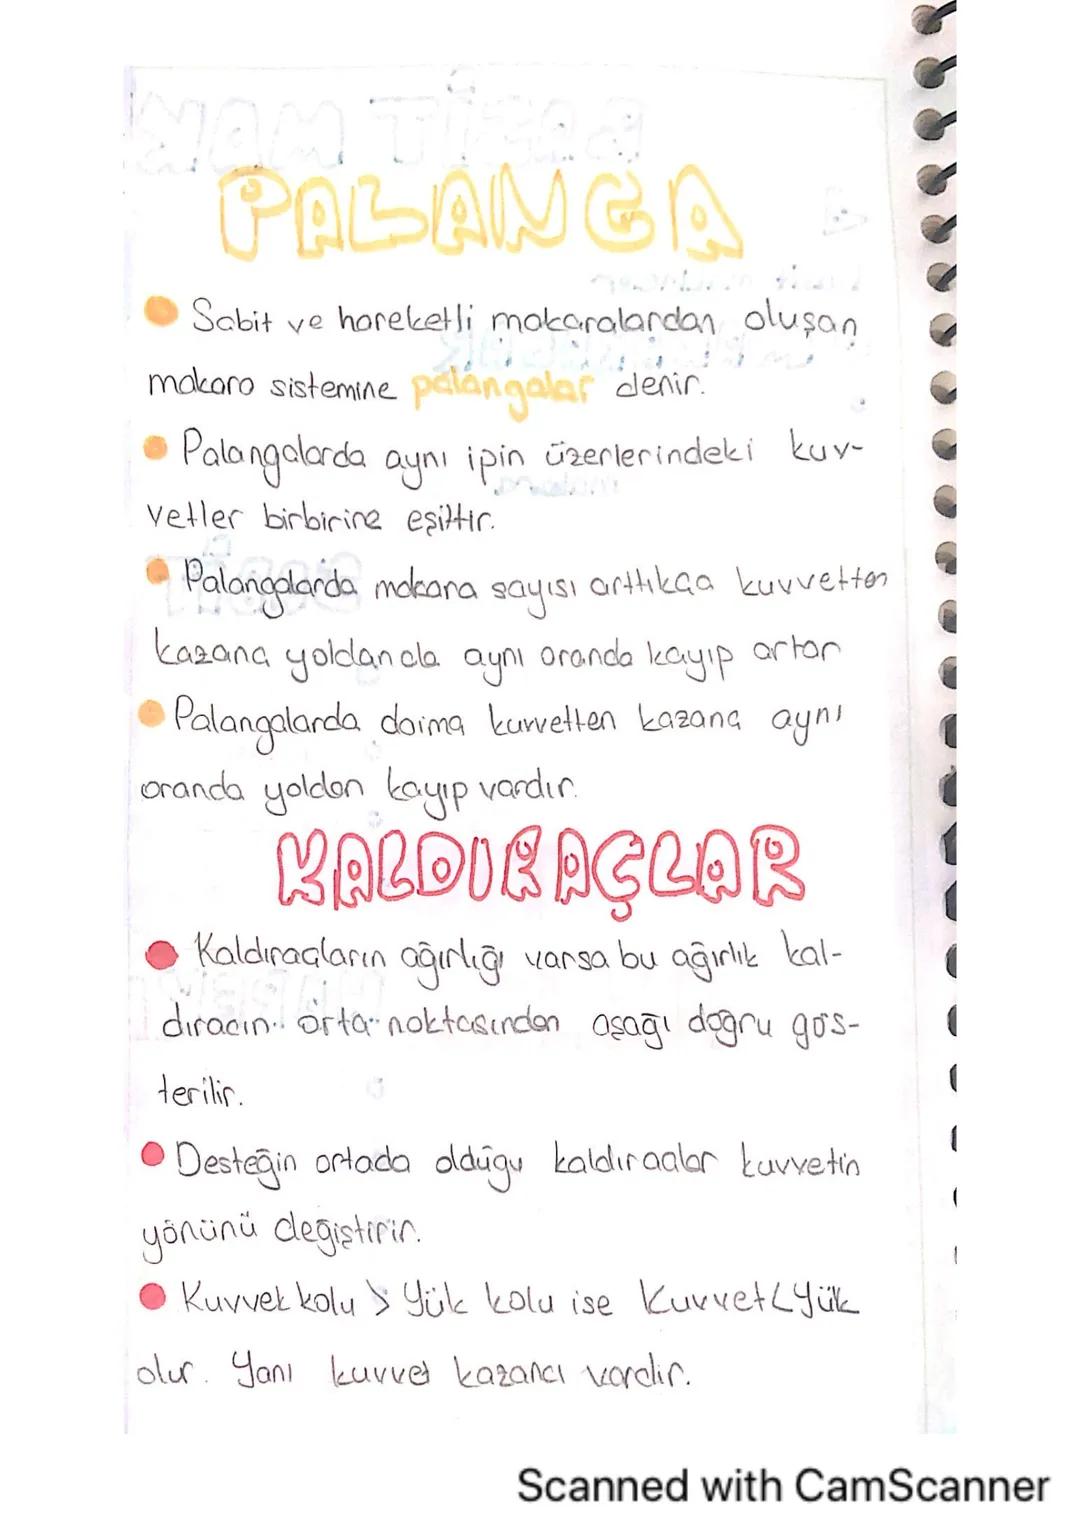 PALANGA
Sabit ve hareketli makaralardan oluşan
makara sistemine palangalar denir.
Palangalarda aynı ipin üzerlerindeki kuv-
vetler birbirine eşittir.
Palangalarda makara sayısı arttıkça kuvvetten
kazanç yoldan da aynı oranda kayıp artar
Palangalarda daima kuvvetten kazanç aynı
oranda yoldan kayıp vardır.
KALDIRAÇLAR
Kaldıraçların ağırlığı varsa bu ağırlık kal-
dıracın orta noktasından aşağı doğru gös-
terilir.
Desteğin ortada olduğu kaldıraçlar kuvvetin
yönünü değiştirir.
Kuvvet kolu > Yük kolu ise Kuvvet < Yük
olur. Yani kuvvet kazancı vardır.
Scanned with CamScanner